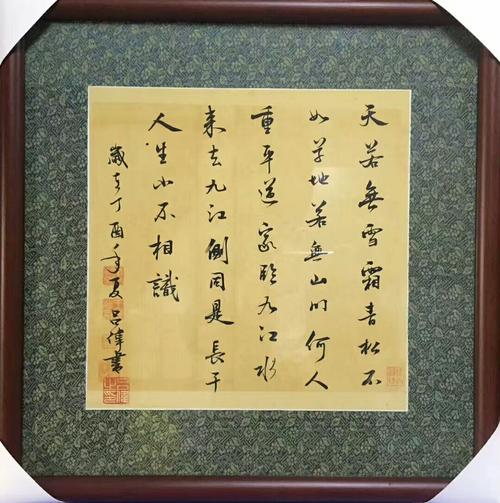 天若無雪霜青松不
如草地若無山川何人
重平道家臨九江水
来去九江側同是長干
人生小不相識
歲在丁酉年夏呂偉書